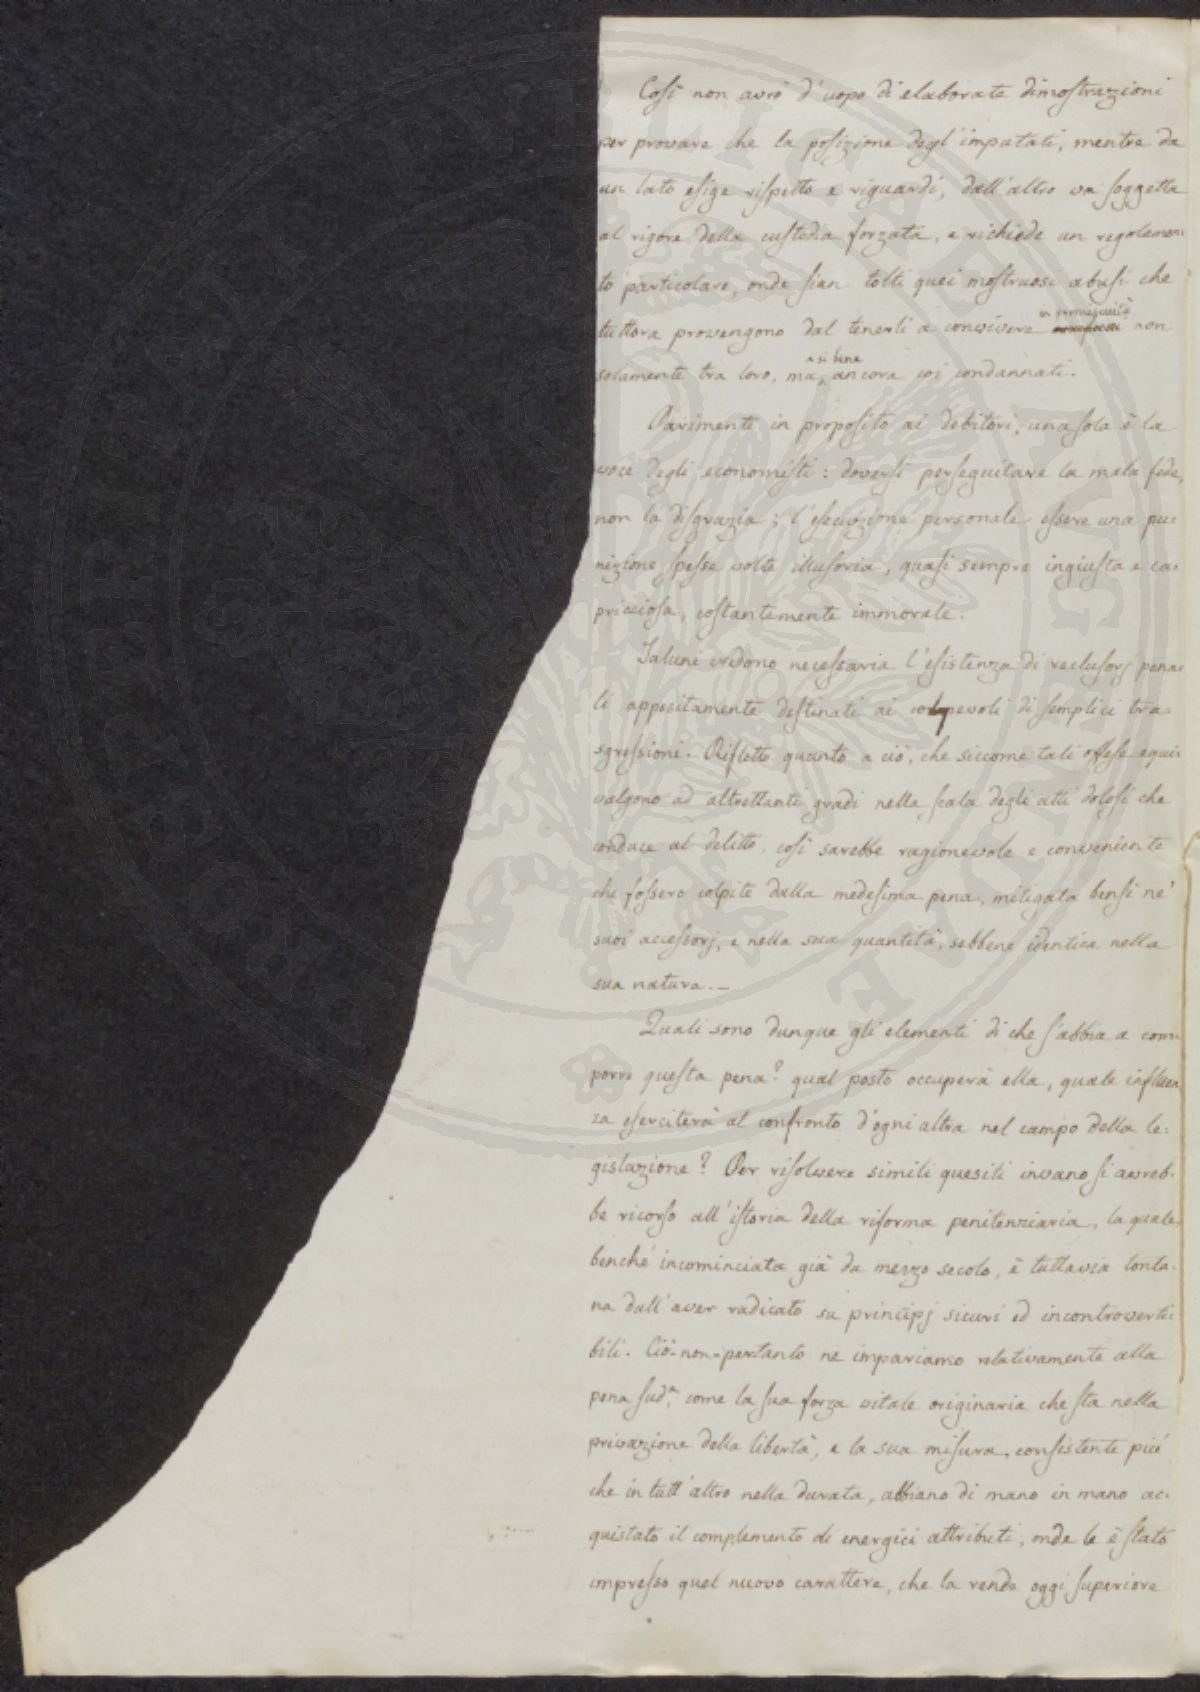 Così non avrò d'uopo di elaborate dimostrazioni
per provare che la posizione degl'imputati, mentre da
un lato esige rispetto e riguardi, dall'altro va soggetta
al rigore della custodia forzata, e richiede un regolamen-
to particolare, onde sian tolti quei mostruosi abusi che
tuttora provengono dal tenerli a convivere in promiscuità non
solamente tra loro, ma si bene ancora coi condannati.
Parimente in proposito ai debitori, una sola è la
voce degli economisti: doversi perseguitare la mala fede,
non la disgrazia; l'esecuzione personale essere una pu-
nizione spesse volte illusoria, quasi sempre ingiusta e ca-
pricciosa, costantemente immorale.
Taluni credono necessaria l'esistenza di reclusorj pena-
li appositamente destinati ai colpevoli di semplici tra-
sgressioni. Rifletto quanto a ciò, che siccome tali offese equi-
valgono ad altrettanti gradi nella scala degli atti dolosi che
conduce al delitto, così sarebbe ragionevole e conveniente
che fossero colpite dalla medesima pena, mitigata bensì ne'
suoi accessorj, e nella sua quantità, sebbene identica nella
sua natura. —
Quali sono dunque gli elementi di che s'abbia a com-
porre questa pena? qual posto occuperà ella, quale influen
za eserciterà al confronto d'ogni altra nel campo della le-
gislazione? Per risolvere simili quesiti invano si avreb-
be ricorso all'istoria della riforma penitenziaria, la quale,
benchè incominciata già da mezzo secolo, è tuttavia lonta-
na dall'aver radicato su principj sicuri ed incontroverti-
bili. Ciò-non-pertanto ne impariamo relativamente alla
pena sud.a, come la sua forza vitale originaria che sta nella
privazione della libertà, e la sua misura, consistente più
che in tutt'altro nella durata, abbiano di mano in mano ac-
quistato il complemento di energici attributi, onde le è stato
impresso quel nuovo carattere, che la rende oggi superiore